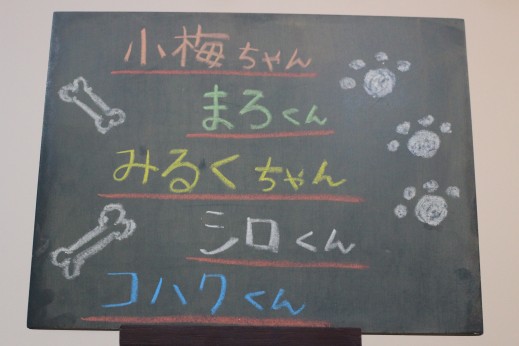 小梅ちゃん
まろくん
みるくちゃん
シロくん
コハクくん